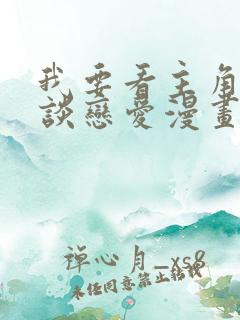 我要看主角
談戀愛漫畫
禅心月_xs8
未任同意禁止轉載